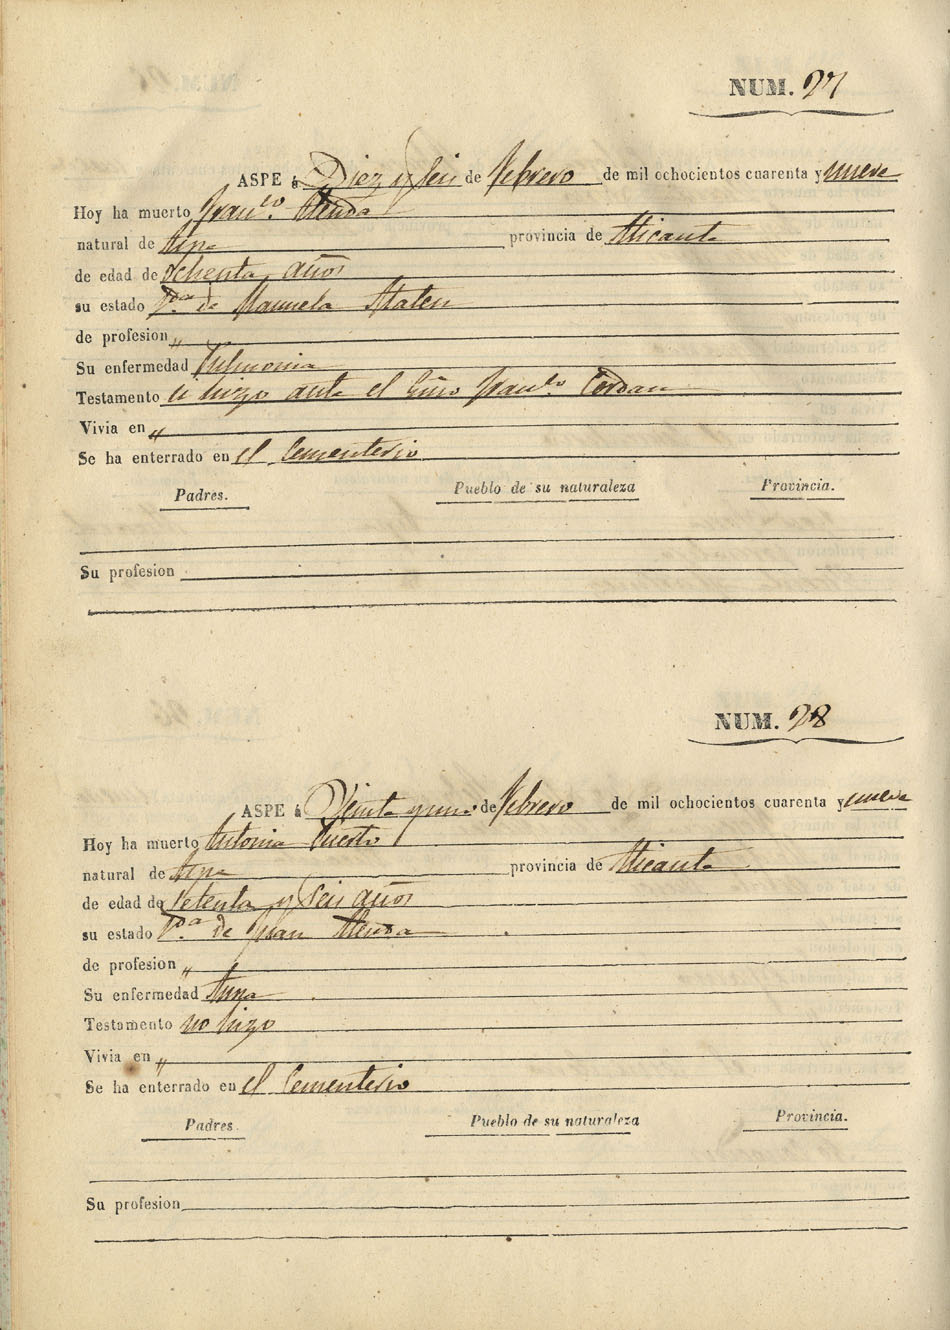 NUM. 27
ASPE á Diez y Seis de Febrero de mil ochocientos cuarenta y nueve
Hoy ha muerto Franco. Alenda
natural de Aspe provincia de Alicante
de edad de ochenta años
su estado Vdo. de Manuela
de profesion "
Su enfermedad Pulmonia
Testamento hizo ante el Franco.
Vivia en "
Se ha enterrado en el Cementerio
Padres. Pueblo de su naturaleza Provincia.
Su profesion
NUM. 28
ASPE á Veinte y uno de Febrero de mil ochocientos cuarenta y nueve
Hoy ha muerto Antonia Puerto
natural de Aspe provincia de Alicante
de edad de setenta y Seis años
su estado Vda. de Juan Alenda
de profesion "
Su enfermedad
Testamento no hizo
Vivia en "
Se ha enterrado en el Cementerio
Padres. Pueblo de su naturaleza Provincia.
Su profesion